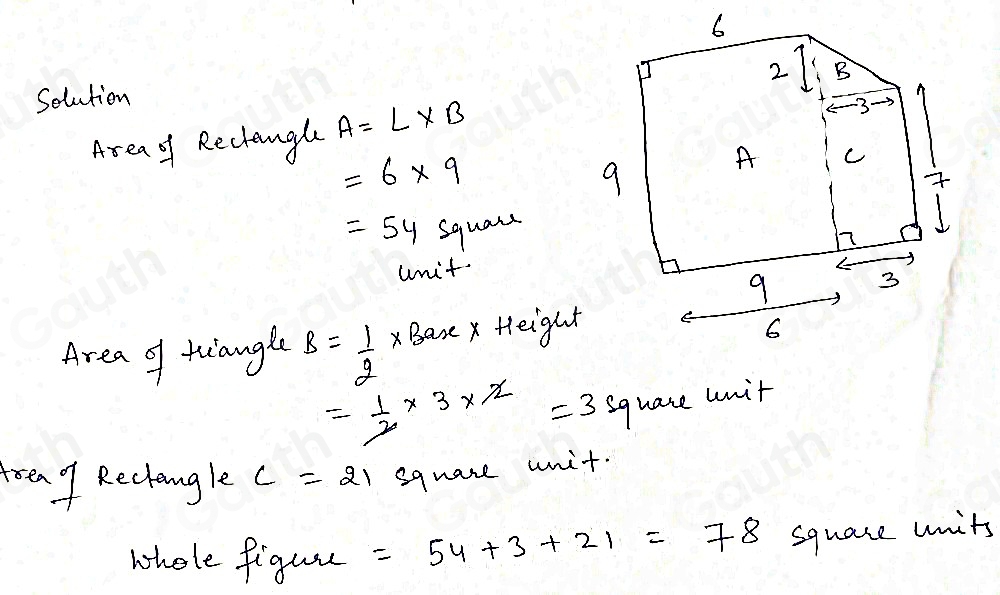 Solution
Area of Rectangle A = L × B
= 6 × 9
= 54 square
unit.
Area of triangle B = 1/2 × Base × Height
= 1/2 × 3 × 2 = 3 square unit
Area of Rectangle C = 21 square unit.
Whole figure = 54 + 3 + 21 = 78 square units
6
2
B
3
9
A
C
7
9
3
6
Gauth